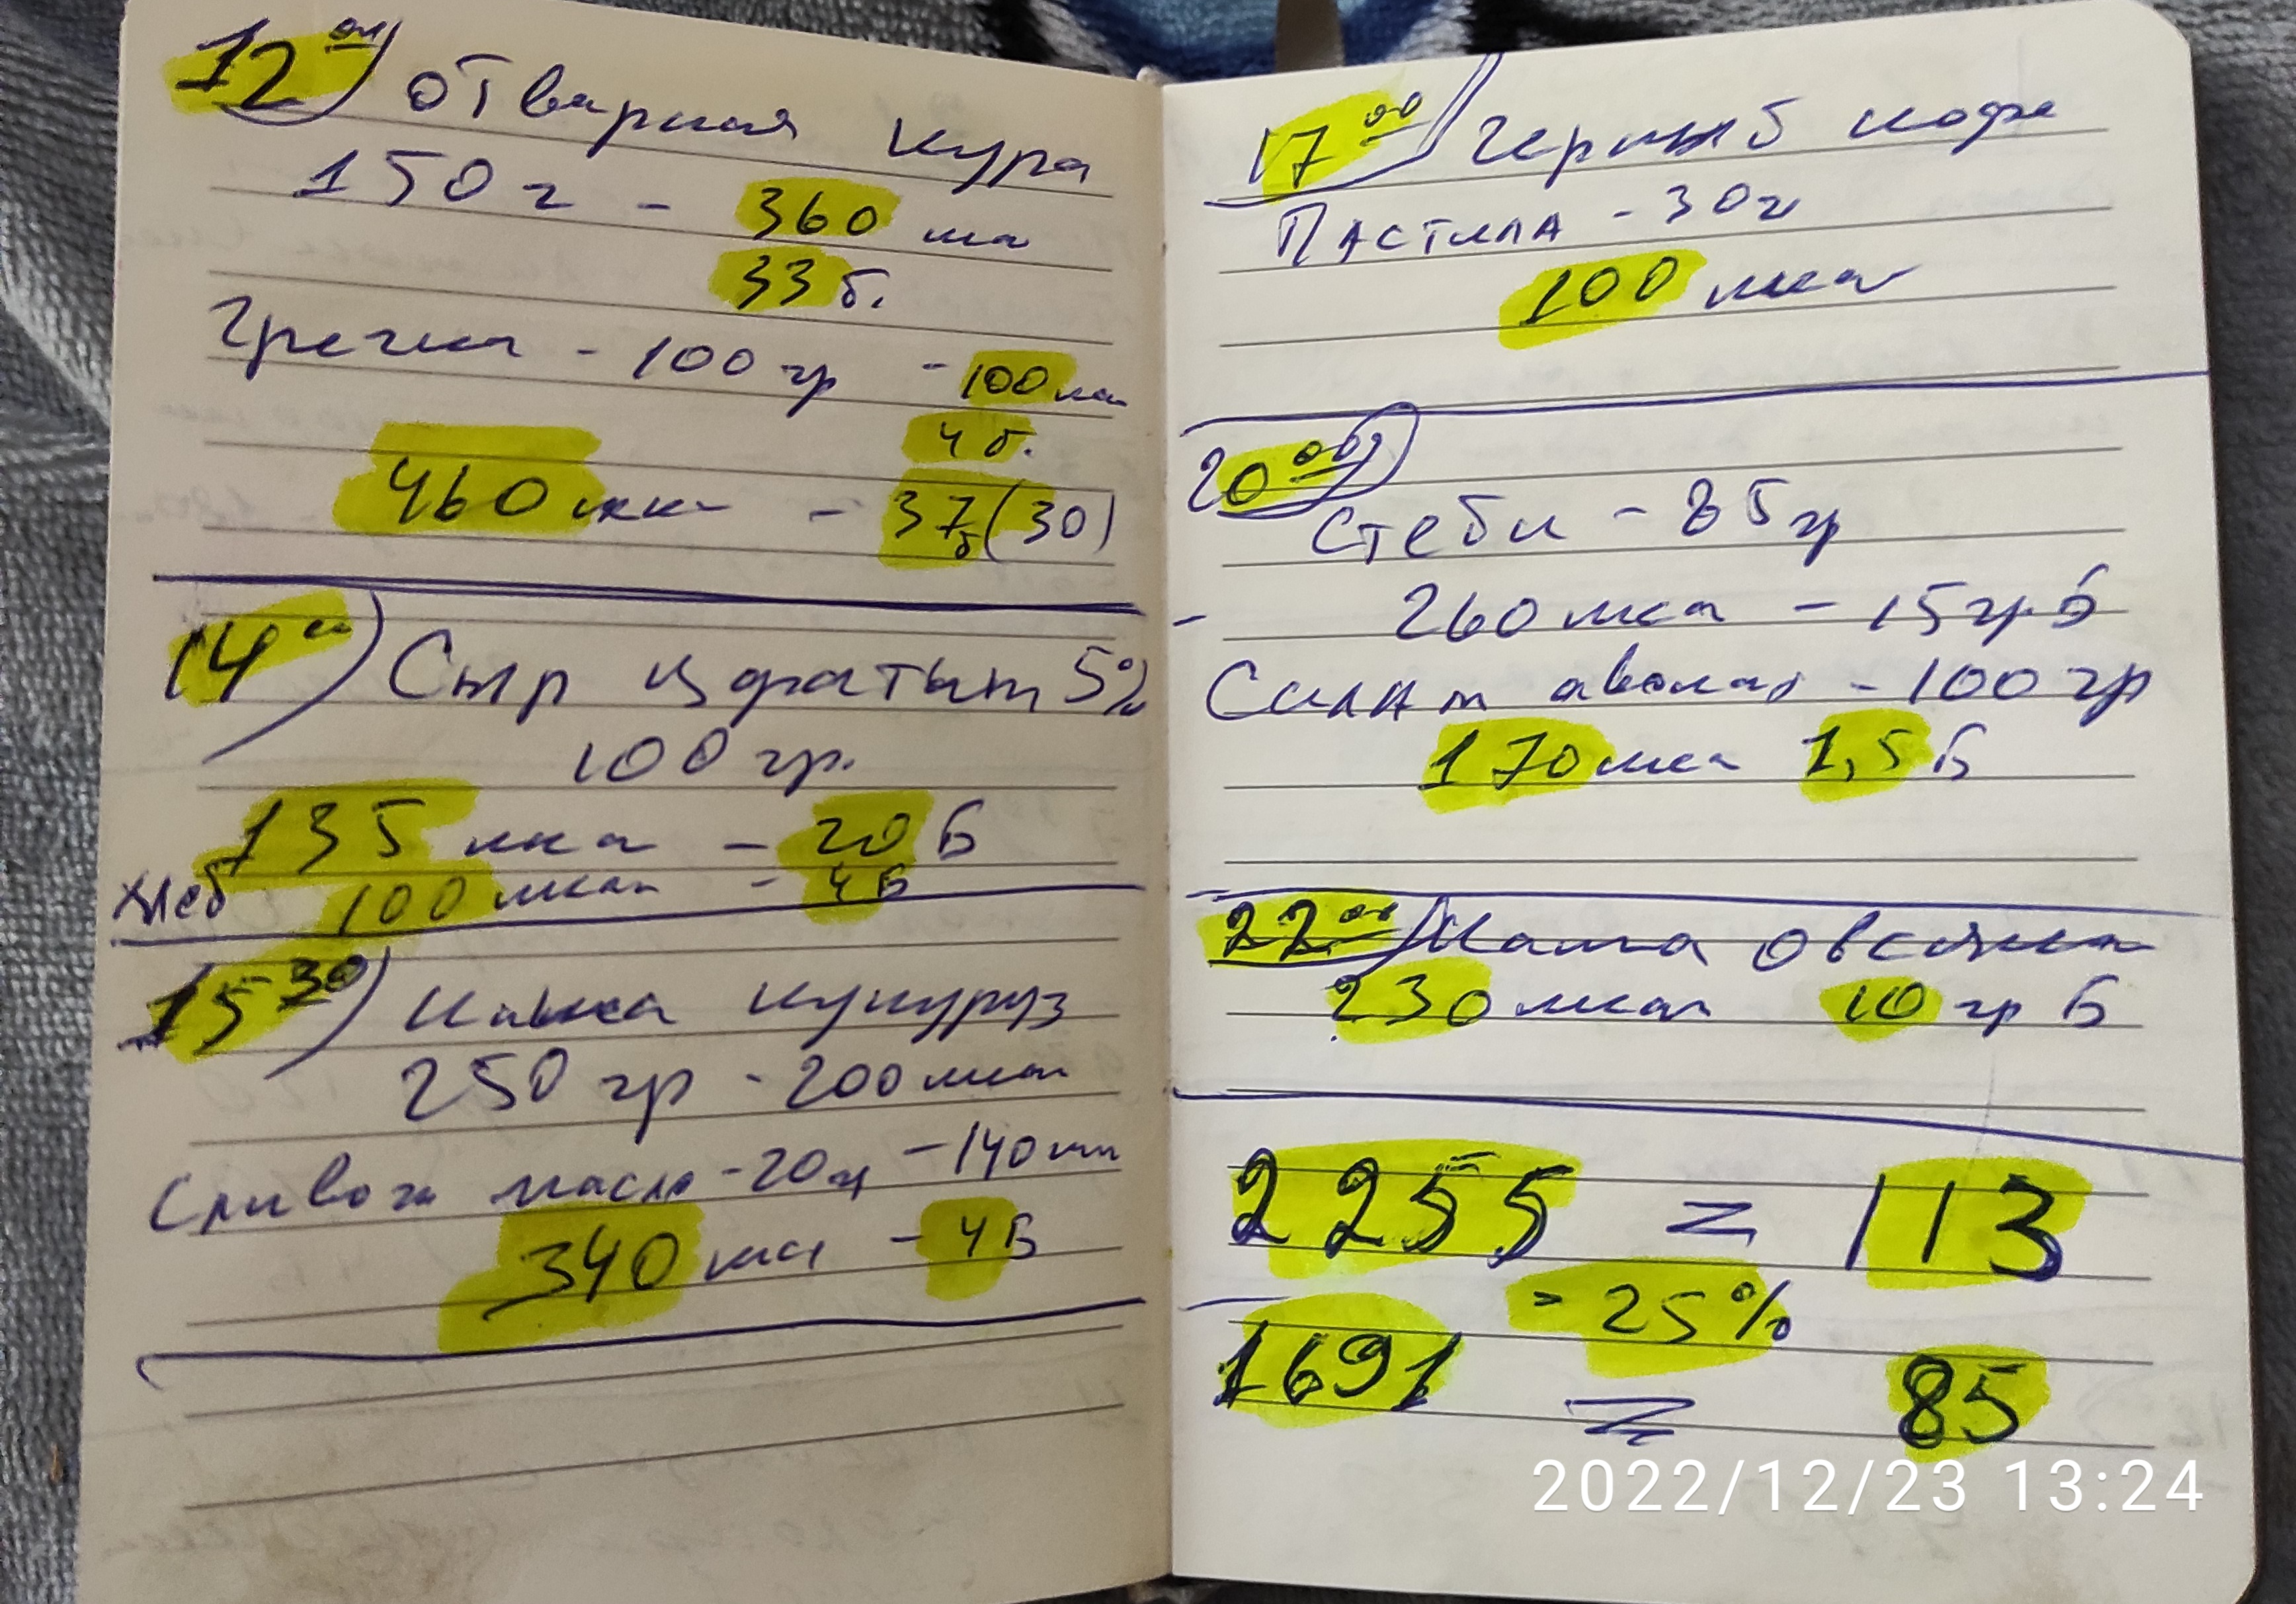 12 00) отварная кура
150 г - 360 ккал
33 б.
Гречка - 100 гр - 100 ккал
4 б.
460 ккал - 37 б (30)
14 00) Сыр 5%
100 гр.
135 ккал - 20 Б
Хлеб 100 ккал - 4 Б
15 30) Каша кукуруз
250 гр - 200 ккал
Сливоч масло - 20 г - 140 ккал
340 ккал - 4 Б
17 00) Черный кофе
Пастила - 30 г
100 ккал
20 00)
- 85 гр
260 ккал - 15 гр Б
Салат авокадо - 100 гр
170 ккал 1,5 Б
22 00) Каша овсянка
230 ккал 10 гр Б
2255 = 113
- 25%
1691 = 85
2022/12/23 13:24